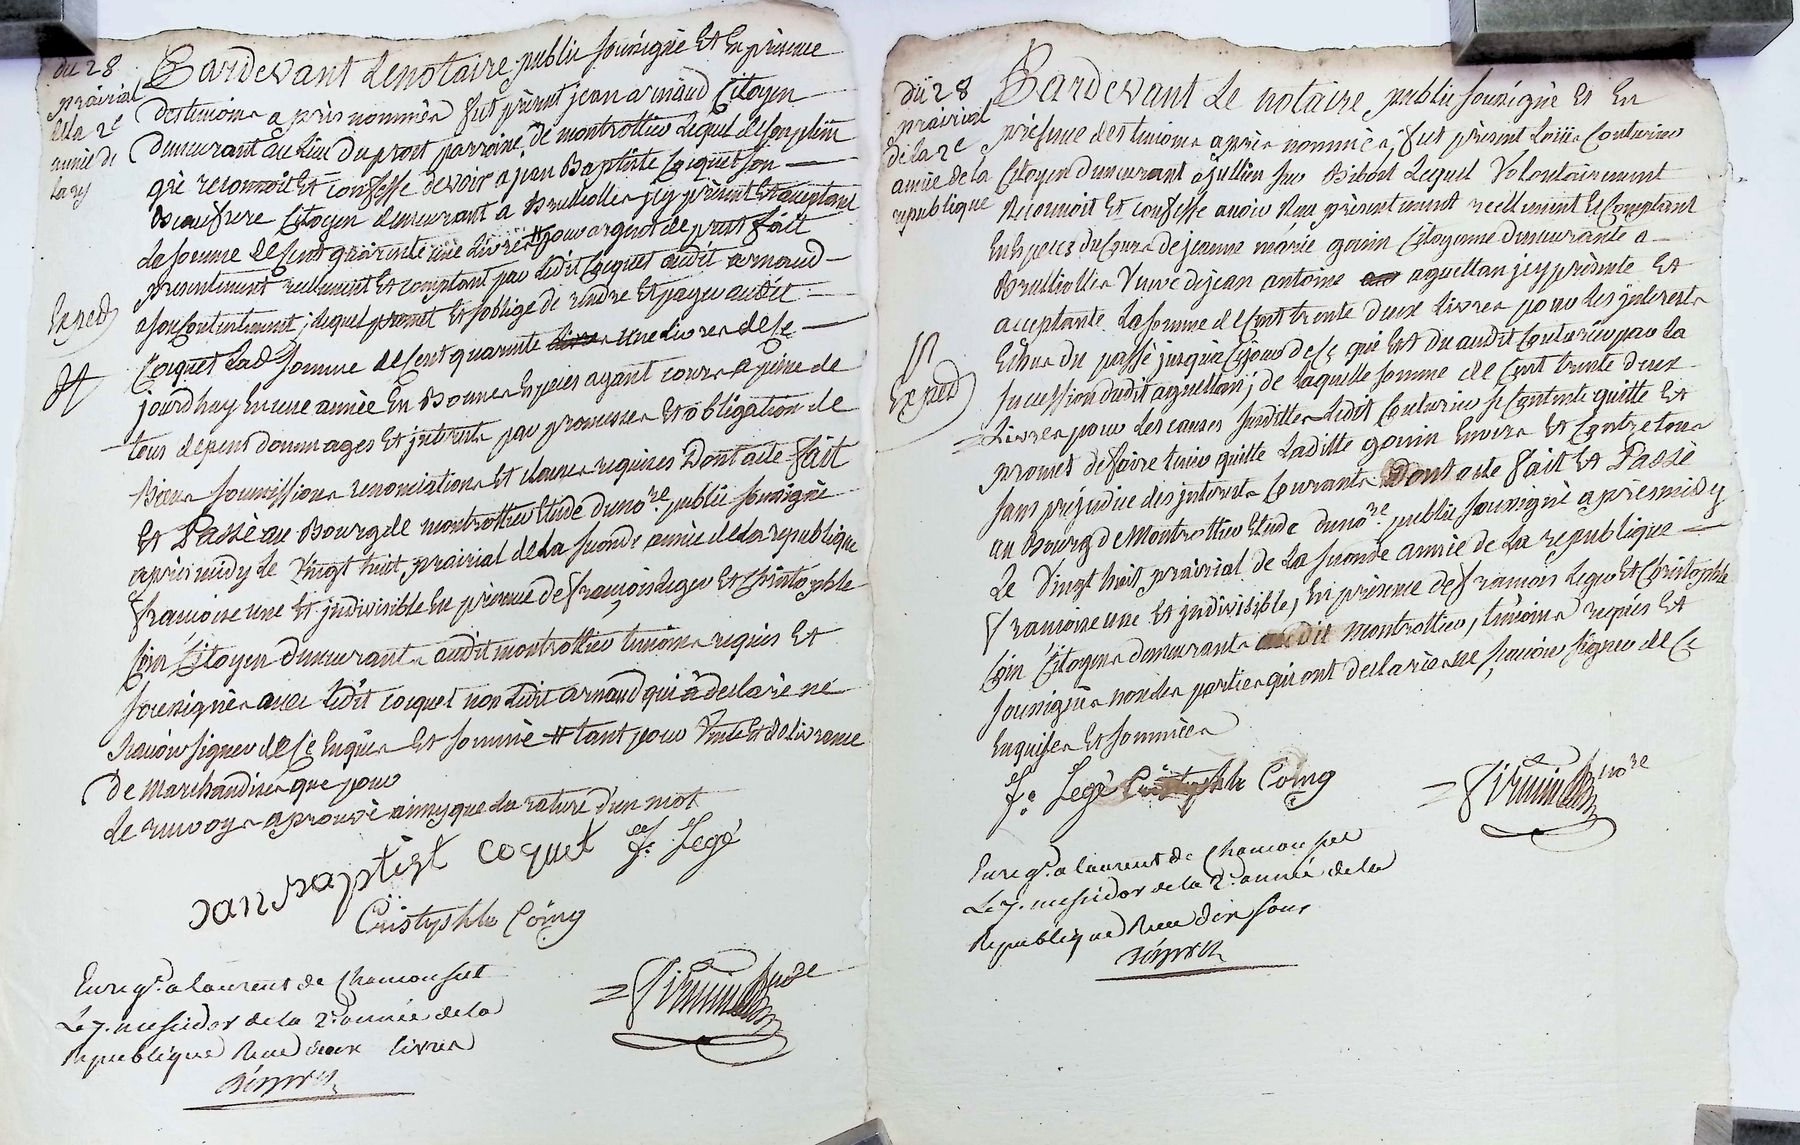 du 28
prairial
de la 2e
année de
la rp
Pardevant le notaire public sousigné et en présence
des temoins après nommés fut présent jean arnaud Citoyen
demeurant au lieu du prost parroisse de montrottier lequel de son plein
gré reconnoit et confesse devoir a jean Baptiste Cocquet son
Beaufrere Citoyen demeurant a Brulliolles jcy présent et acceptant
la somme de Cent quarente une livres # pour argent de prest fait
presentement reellement et comptant par ledit Cocquet audit arnaud
a son Contentement ; lequel promet et soblige de rendre et payer audit
Exped
Cocquet lad. somme de Cent quarente une livres de Ce
jourdhuy en une année en Bonnes Espèces ayant cours a peine de
tous dépens dommages et jnterests par promesses et obligation de
Biens soumissions renonciations et clauses requises Dont acte fait
et Passé au Bourg de montrottier etude du nore. public sousigné
après midy le Vingt huit prairial de la seconde année de la republique
françoise une et jndivisible en présence de françois leger et Christophle
Coin Citoyen demeurants audit montrottier temoins requis et
sousignés avec ledit cocquet non ledit arnaud qui a declaré ne
scavoir signer de Ce Enquis et sommé # tant pour Vente et delivrance
De marchandises que pour
le renvoy aprouvé ainsy que la rature d'un mot
jan Baptist coquet f. Legé
Cristophle Coing
nore
Enregt. a laurent de Chamousset
Le 7. messidor de la 2e. année de la
Republique Reçu deux livres
du 28
prairial
de la 2e
année de la
republique
Pardevant le notaire public sousigné et en
présence des temoins après nommés, fut présent
Citoyen demeurant a jullien sur Bibost lequel Volontairement
Reconnoit et confesse avoir reçu présentement reellement et Comptant
en Espèces du Cours de jeanne marie gonin Citoyenne demeurante a
Brulliolles Veuve de jean antoine aguettan jcy présente et
acceptante la somme de Cent trente deux livres pour les jnterests
Echus du passé jusqua Ce jour de Ce qui est du audit Couturier par la
Exped
succession dudit aguettan ; de laquelle somme de Cent trente deux
livres pour les causes susdittes ledit Couturier se Contente quitte et
promet de faire tenir quitte laditte gonin Envers et Contre tous
sans préjudice des jnterests Courants Dont acte fait et Passé
au Bourg de Montrottier Etude du nore. public sousigné après midy
le Vingt huit prairial de la seconde année de la republique
françoise une et jndivisible, en présence de françois leger et Christophle
Coin Citoyens demeurants audit montrottier, temoins requis et
sousignés non les parties qui ont declaré ne scavoir signer de Ce
Enquises et sommées
f. Legé Cristophle Coing
nore
Enregt. a laurent de Chamousset
Le 7. messidor de la 2e. année de la
Republique Reçu dix sous